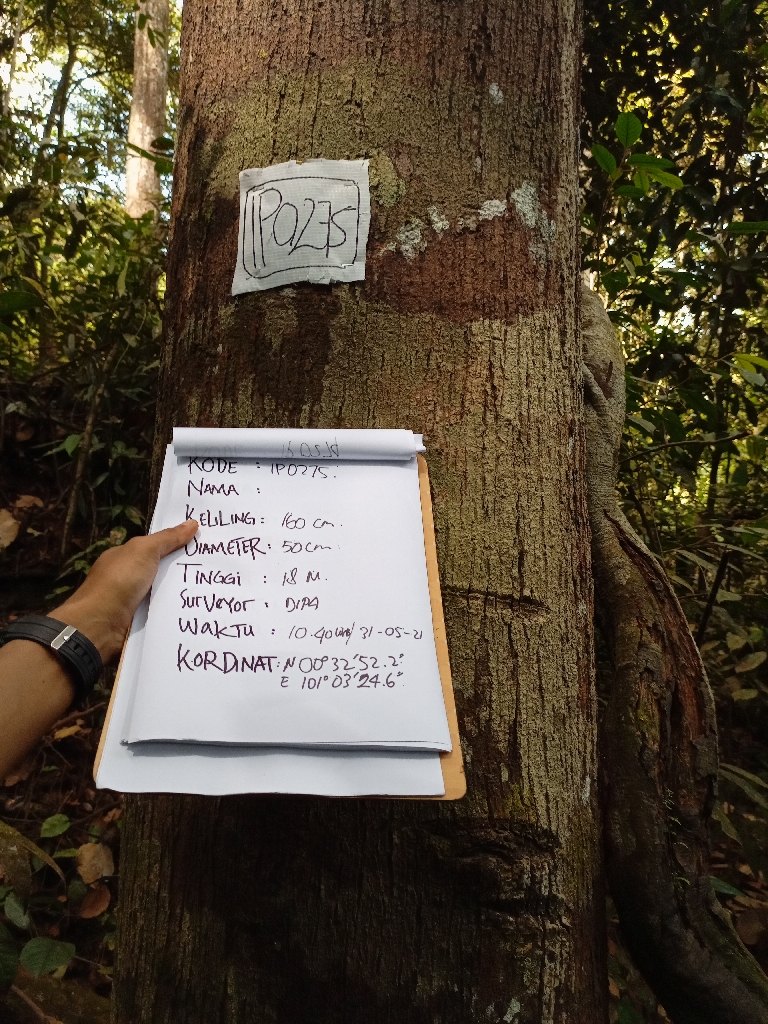 IP0275
KODE : IP0275.
NAMA :
KELLING : 160 cm.
DIAMETER : 50 cm.
TINGGI : 18 M.
SURVEYOR : DIPA
WAKTU : 10.40 / 31-05-21
KORDINAT : N 00° 32' 52.2"
E 101° 03' 24.6"